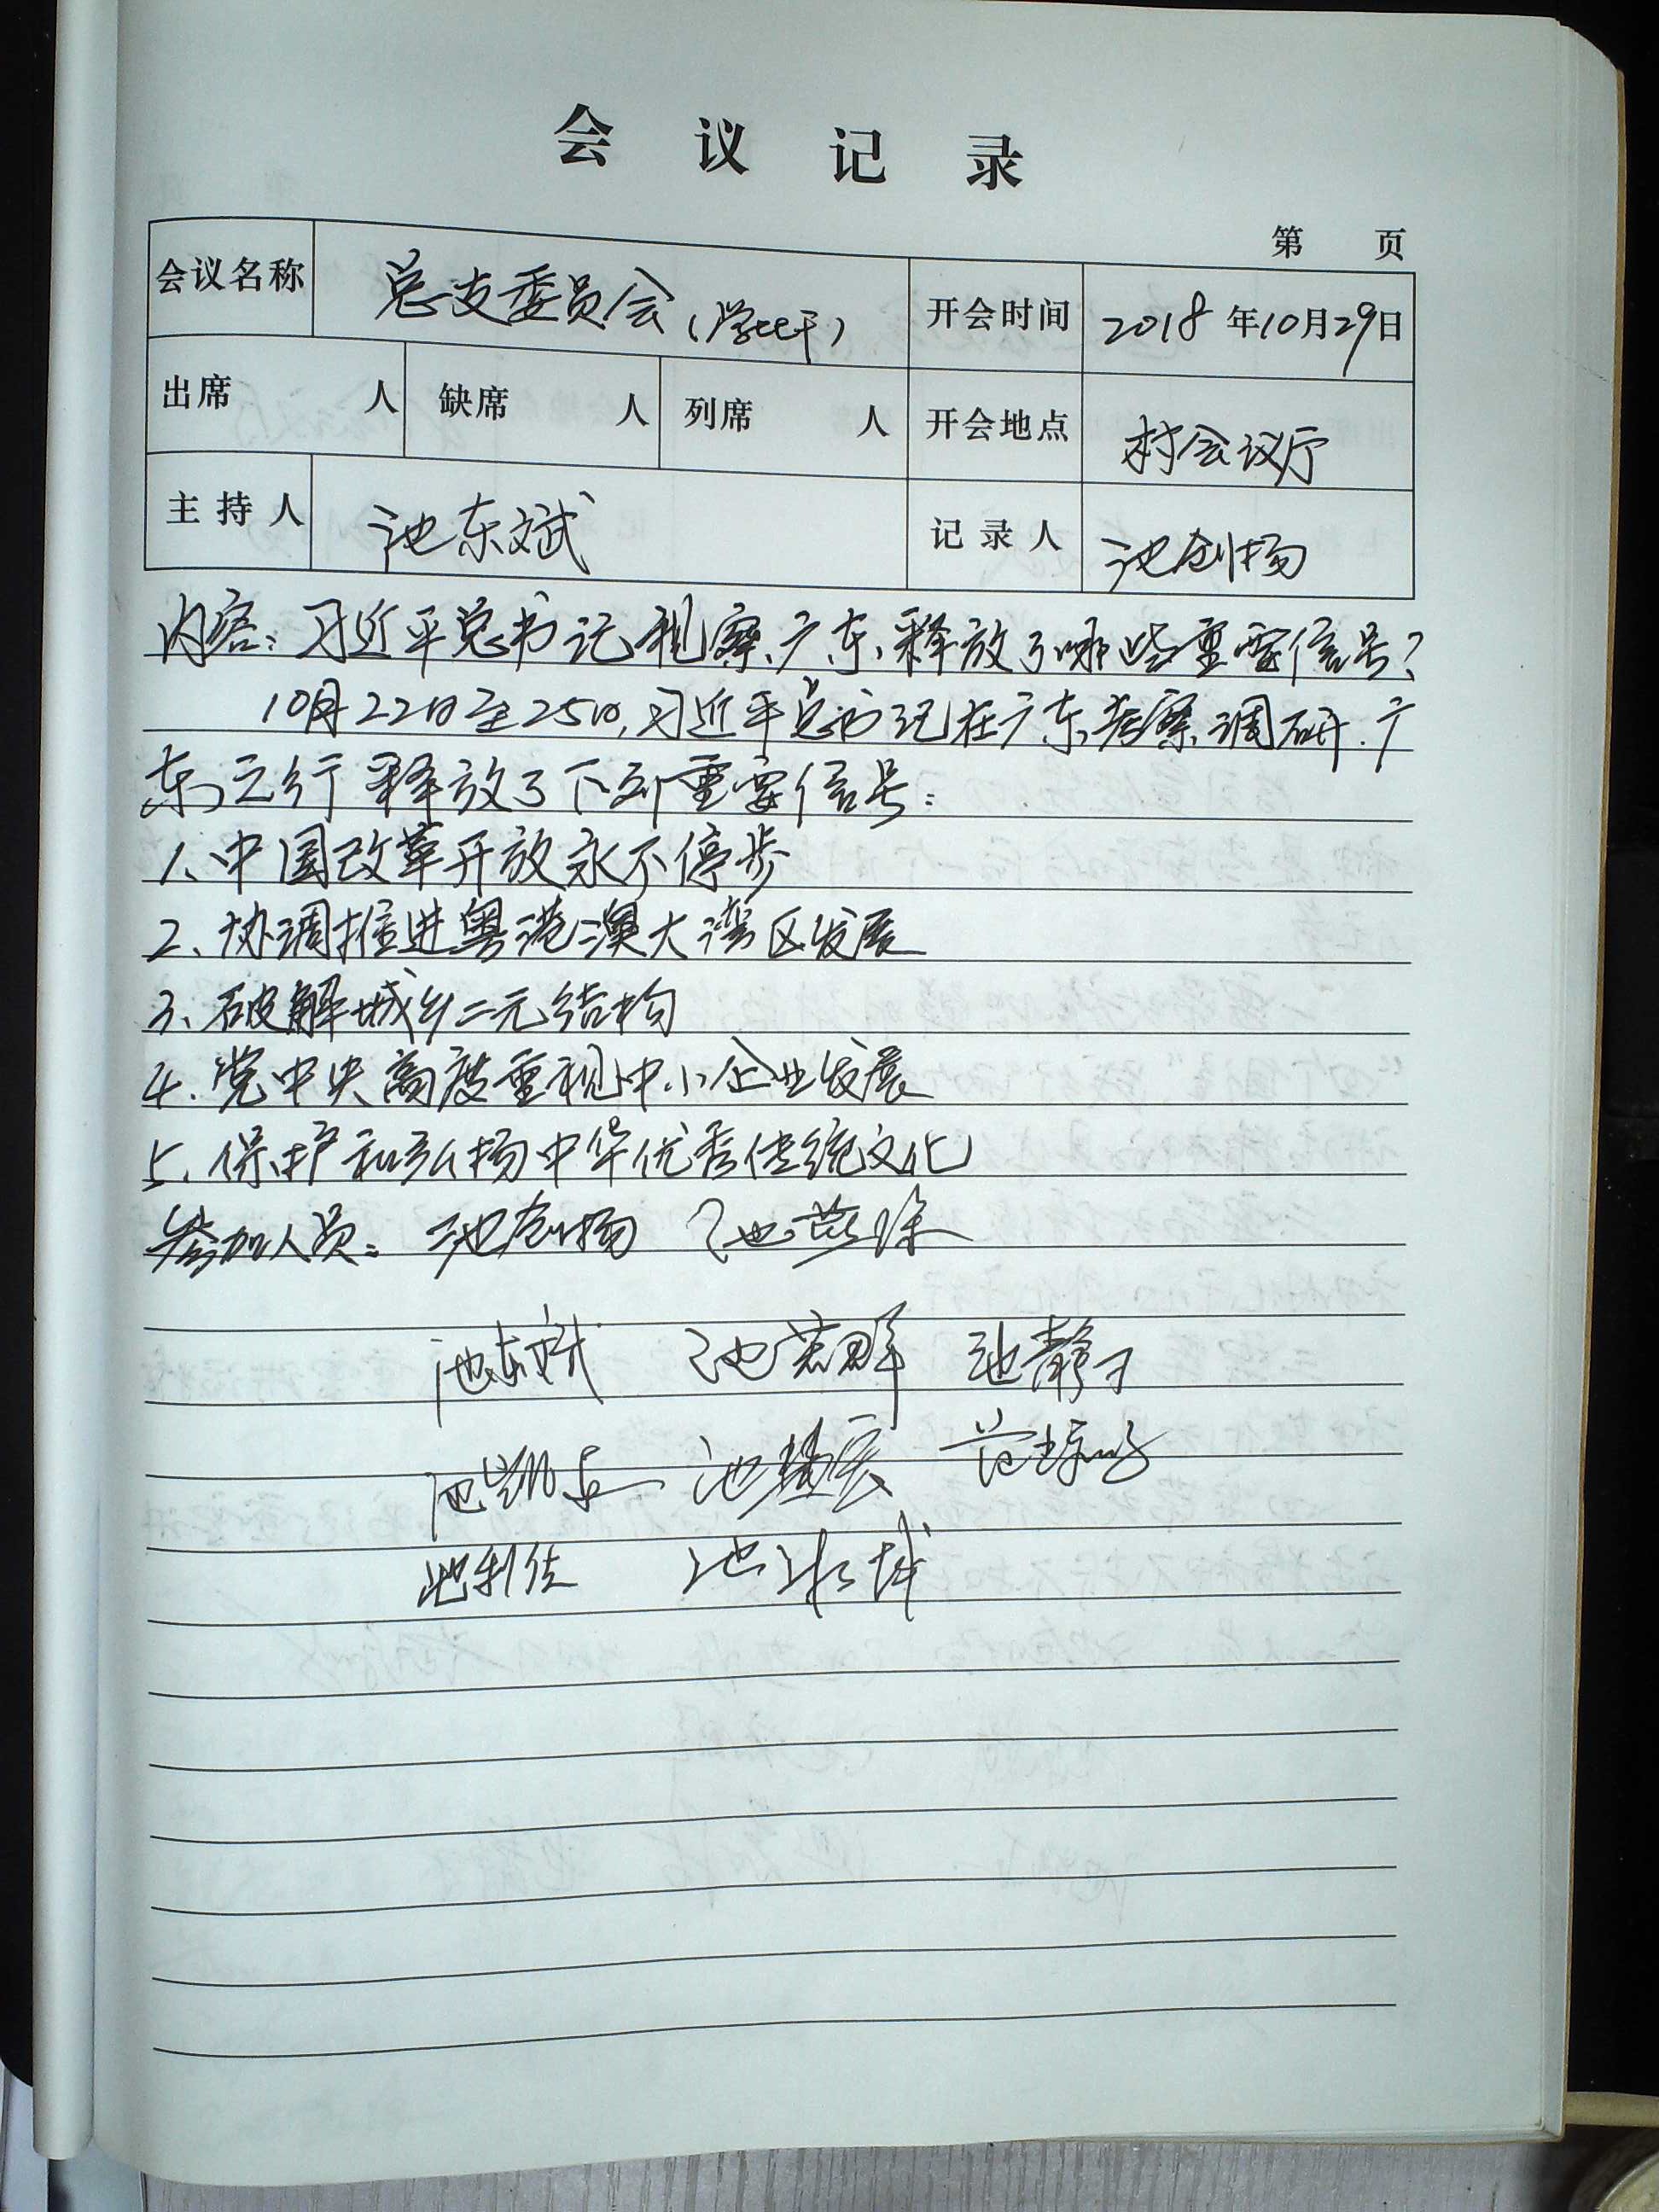 会议记录
第 页
会议名称 总支委员会 开会时间 2018年10月29日
出席 人 缺席 人 列席 人 开会地点 村会议厅
主持人 池东斌 记录人 池创扬
内容：习近平总书记视察广东释放了哪些重要信号？
10月22日至25日，习近平总书记在广东考察调研.广
东之行释放了下列重要信号：
1、中国改革开放永不停步
2、协调推进粤港澳大湾区发展
3、破解城乡二元结构
4、党中央高度重视中小企业发展
5、保护和弘扬中华优秀传统文化
参加人员：池创扬
池东斌